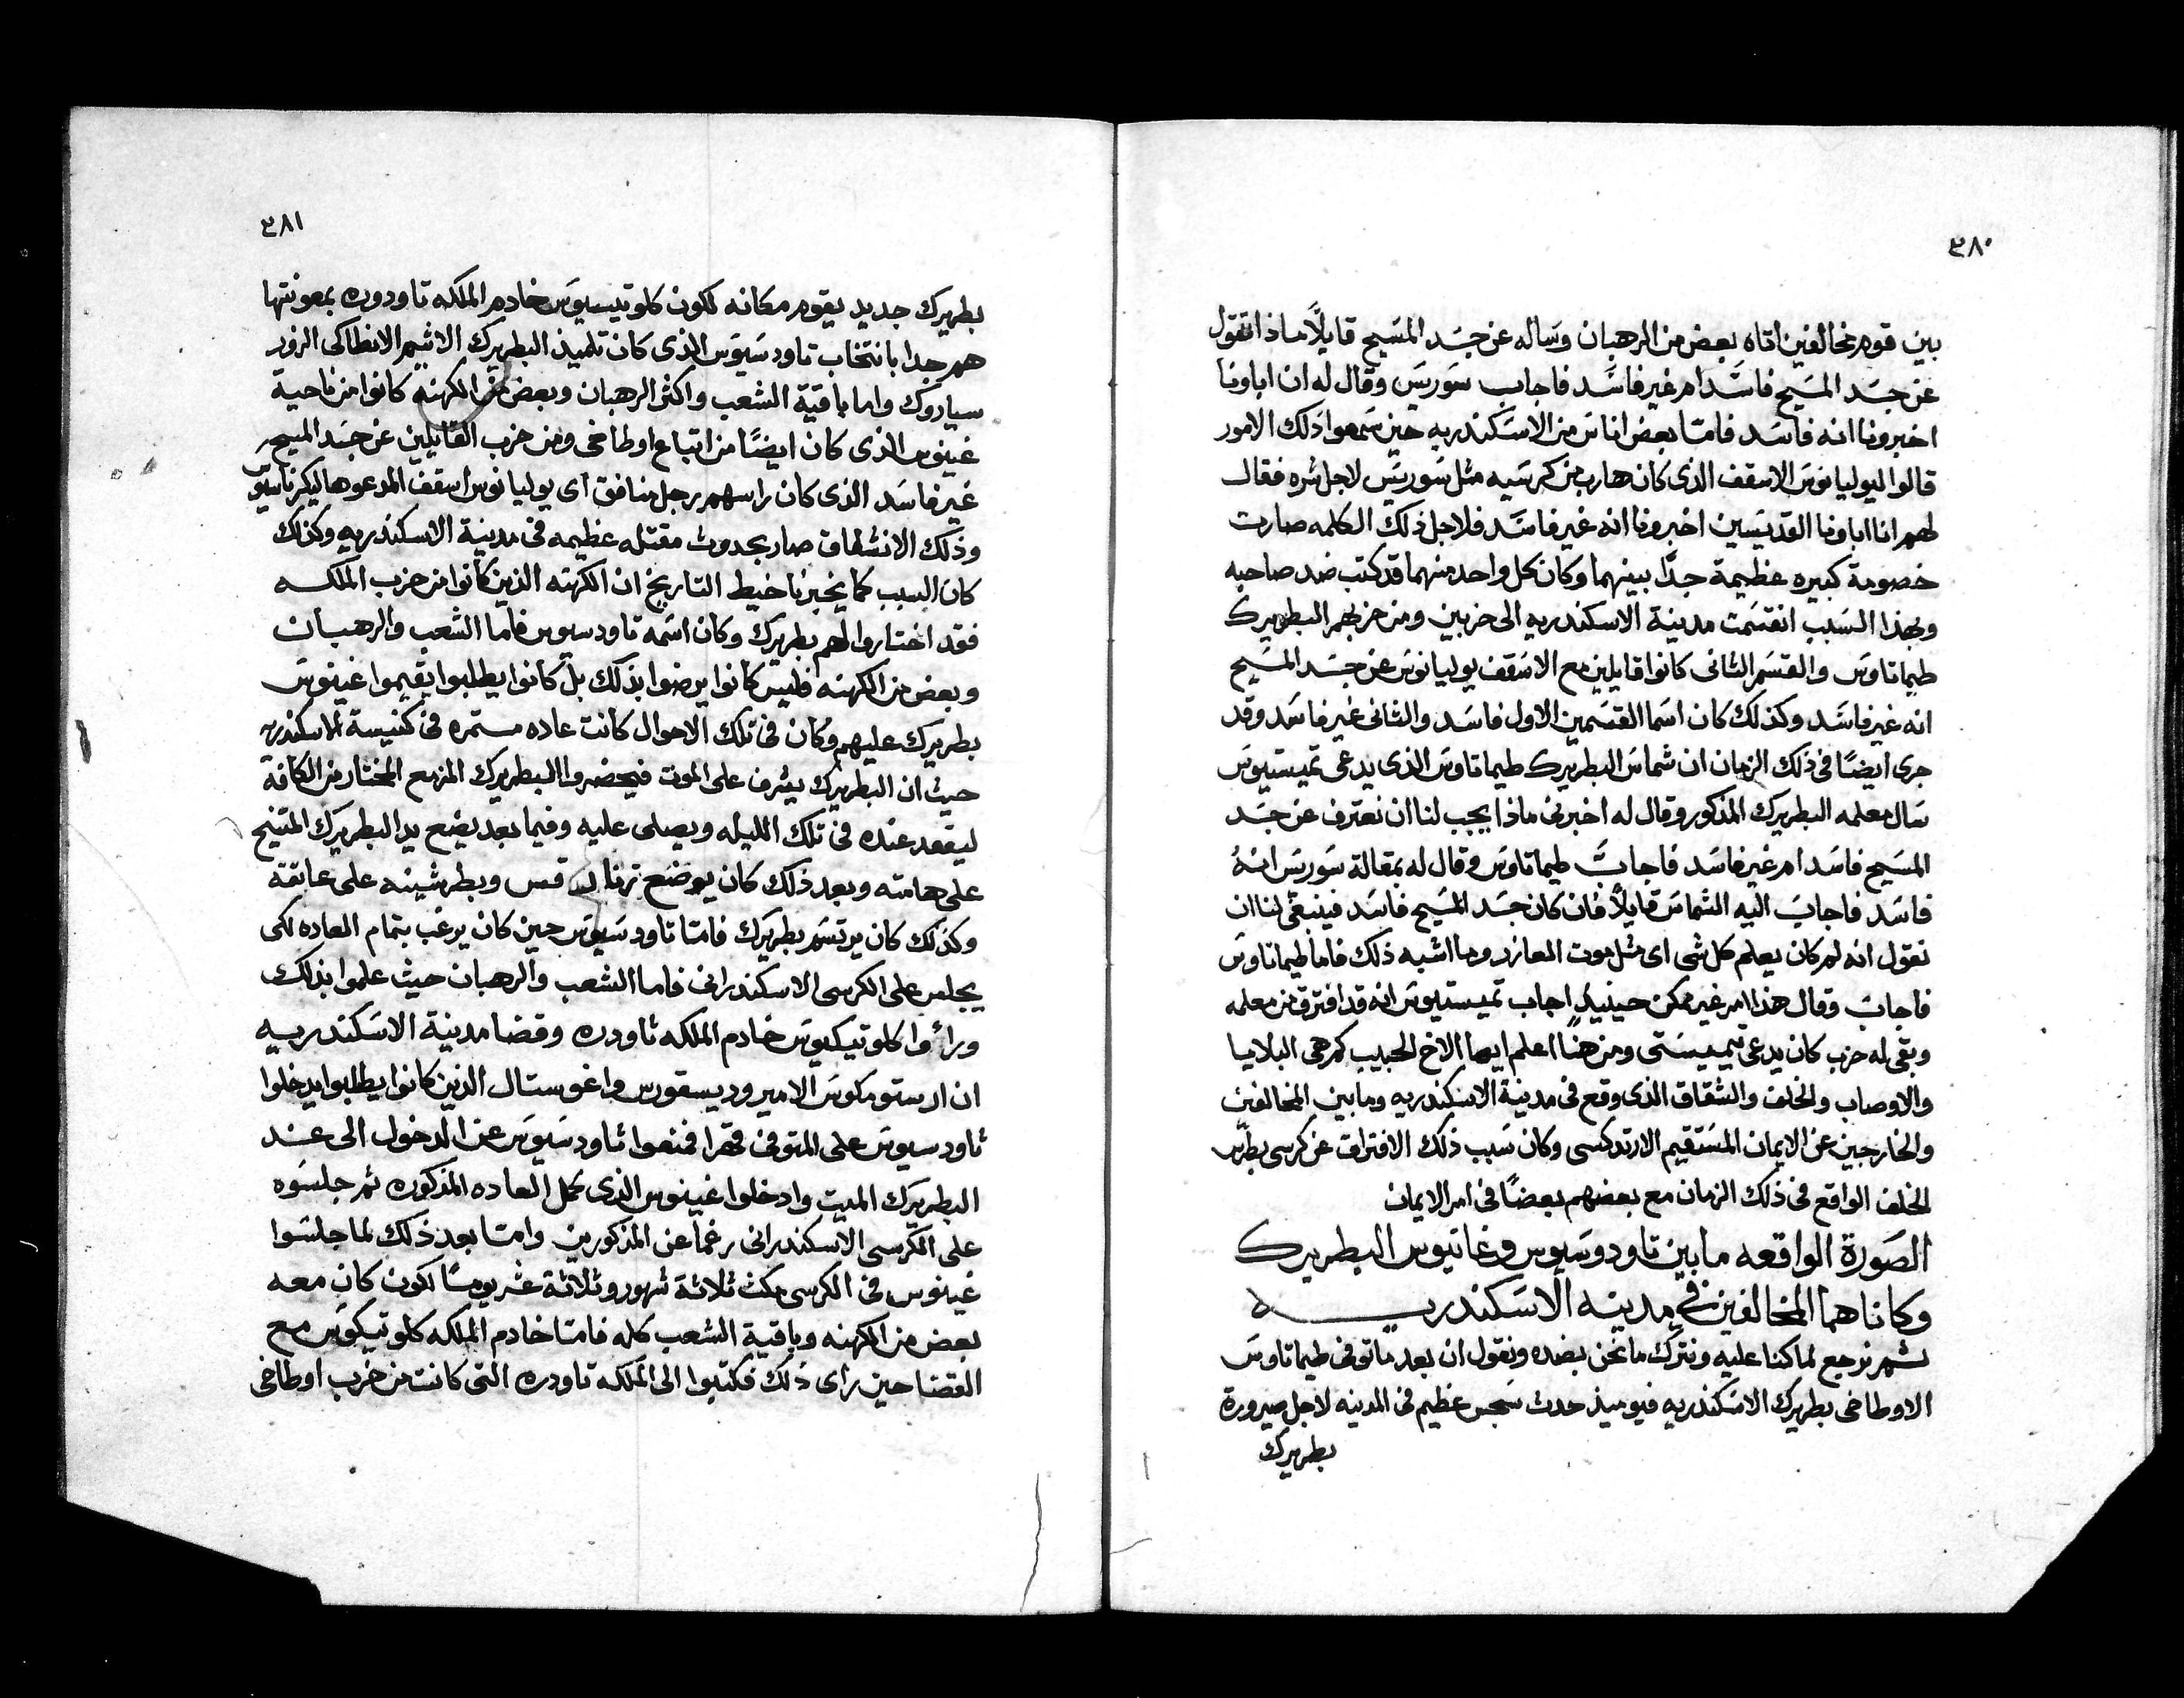 ٣٨٠
بين قوم مخالفين اتاه بعض من الرهبان وساله عن جسد المسيح قايلاً ماذا تقول
عن جسد المسيح فاسد ام غير فاسد فاجاب سوريس وقال له ان اباونا
اخبرونا انه فاسد فامتا بعض اناس من الاسكندريه حين سمعوا ذلك الامور
قالوا ليوليانوس الاسقف الذى كان هارب من كرسيه مثل سوريس لاجل شره فقال
لهم انا اباونا القديسين اخبرونا انه غير فاسد فلاجل ذلك الكلمه صارت
خصومة كبيره عظيمة جدًا بينهما وكان كل واحد منهما قد كتب ضد صاحبه
وبهذا السبب انقسمت مدينة الاسكندريه الى حزبين ومن حزبهم البطريرك
طيماتاوس والقسم الثانى كانوا قايلين مع الاسقف يوليانوس عن جسد المسيح
انه غير فاسد وكذلك كان اسما القسمين الاول فاسد والثانى غير فاسد وقد
جرى ايضًا فى ذلك الزمان ان شماس البطريرك طيماتاوس الذى يدعى تميستيوس
سال معلمه البطريرك المذكور وقال له اخبرنى ماذا يجب لنا ان نعترف عن جسد
المسيح فاسد ام غير فاسد فاجاب طيماتاوس وقال له بمقالة سوريس انهُ
فاسد فاجاب اليه الشماس قايلاً فان كان جسد المسيح فاسد فينبغى لنا ان
نقول انه لم كان يعلم كل شى اى مثل موت العازر وما اشبه ذلك فاما طيماتاوس
فاجاب وقال هذا امر غير ممكن حينيدٍ اجاب تميستيوس انه قد افترق من معلمه
وبقى له حزب كان يدعى تيميستى ومن هنا اعلم ايها الاخ الحبيب كم هى البلايا
والاوصاب والخلف والشقاق الذى وقع فى مدينة الاسكندريه وما بين المخالفين
والخارجين عن الايمان المستقيم الارتدكسى وكان سبب ذلك الافتراق عن كرسى بطرس
الخلف الواقع فى ذلك الزمان مع بعضهم بعضًا فى امر الايمان
الصورة الواقعه ما بين تاودوسيوس وغاتيوس البطريرك
وكانا هما المخالفين فى مدينه الاسكندريه
ثم نرجع لما كنا عليه ونترك ما نحن بضده ونقول ان بعد ما توفى طيماتاوس
الاوطاخى بطريرك الاسكندريه فيوميذ حدث سجس عظيم فى المدينه لاجل صيرورة
بطريرك
٣٨١
بطريرك جديد يقوم مكانه لكون كلوتيسيوس خادم الملكه تاودوره بمعونتها
هم جدا بانتخاب تاودسيوس الذى كان تلميذ البطريرك الاثيم الانطاكى الزور
سياروك واما باقية الشعب واكثر الرهبان وبعض من الكهنه كانوا من ناحية
غينوس الذى كان ايضًا من اتباع اوطاخى ومن حزب القايلين عن جسد المسيح
غير فاسد الذى كان راسهم رجل منافق اى يوليانوس اسقف المدعو هاليكرناسوس
وذلك الانشقاق صار بحدوث مقتله عظيمه فى مدينة الاسكندريه وكذلك
كان السبب كما يخبرنا خيط التاريخ ان الكهنه الذين كانوا من حزب الملكه
فقد اختاروا لهم بطريرك وكان اسمه تاودسيوس فاما الشعب والرهبان
وبعض من الكهنه فليس كانوا يرضوا بذلك بل كانوا يطلبوا يقيموا غينوس
بطريرك عليهم وكان فى تلك الاحوال كانت عاده مستمره فى كنيسة الاسكندريه
حيث ان البطريرك يشرف على الموت فيحضروا البطريرك المزمع المختار من الكافة
ليقعد عنده فى تلك الليله ويصلى عليه وفيما بعد يضع يد البطريرك المتنيح
على هامته وبعد ذلك كان يوضع قس وبطرشينه على عاتقة
وكذلك كان يرتسم بطريرك فامتا تاودسيوس حين كان يرغب بتمام العاده لكى
يجلس على الكرسى الاسكندرانى فاما الشعب والرهبان حيث علموا بذلك
ورأوا كلوتيكيوس خادم الملكه ثاودره وقضا مدينة الاسكندريه
ان ارستو مكوس الامير وديسقورس واغوستال الذين كانوا يطلبوا يدخلوا
ثاودسيوس على المتوفى قهرا فمنعوا ثاودسيوس عن الدخول الى عند
البطريرك الميت وادخلوا غينوس الذى كمل العاده المذكوره ثم جلسوه
على الكرسى الاسكندرانى رغمًا عن المذكورين وامتا بعد ذلك لما جلسوا
غينوس فى الكرسى مكث ثلاثة شهور وثلاثة عشر يومًا لكون كان معه
بعض من الكهنه وباقية الشعب كله فامتا خادم الملكه كلوتيكوس مع
القضا حين راى ذلك فكتبوا الى الملكه تاودره التى كانت من حزب اوطاخى